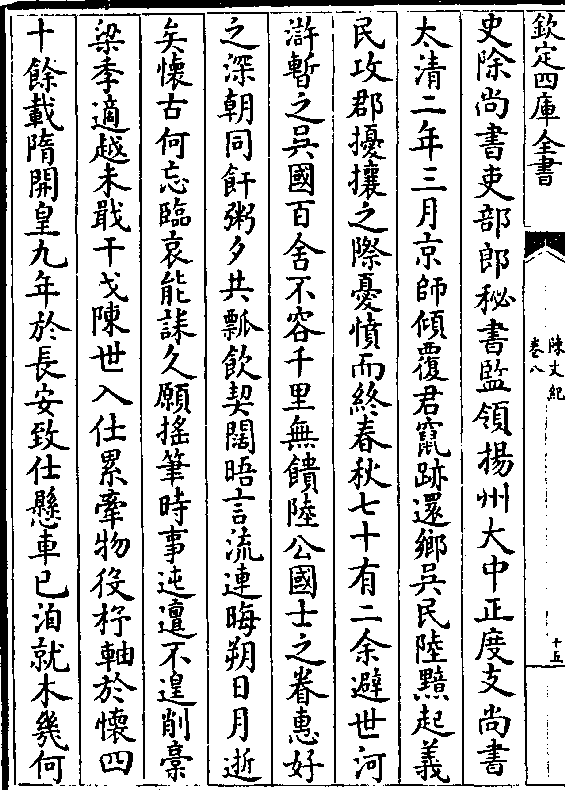 欽定四庫全書
陳文紀
卷八
十五
史除尚書吏部郎秘書監領揚州大中正度支尚書
太清二年三月京師傾覆君竄跡還鄉吳民陸黯起義
民攻郡擾攘之際憂憤而終春秋七十有二余避世河
滸暫之吳國百舍不容千里無饋陸公國士之眷惠好
之深朝同飦粥夕共瓢飲契闊晤言流連晦朔日月逝
矣懷古何忘臨哀能誄久願搖筆時事迍邅不遑削稾
梁季適越未戢干戈陳世入仕累牽物役杼軸於懷四
十餘載隋開皇九年於長安致仕懸車已泊就木幾何